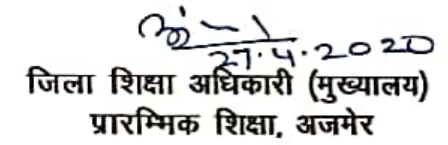 27.4.2020
जिला शिक्षा अधिकारी (मुख्यालय)
प्रारम्भिक शिक्षा, अजमेर